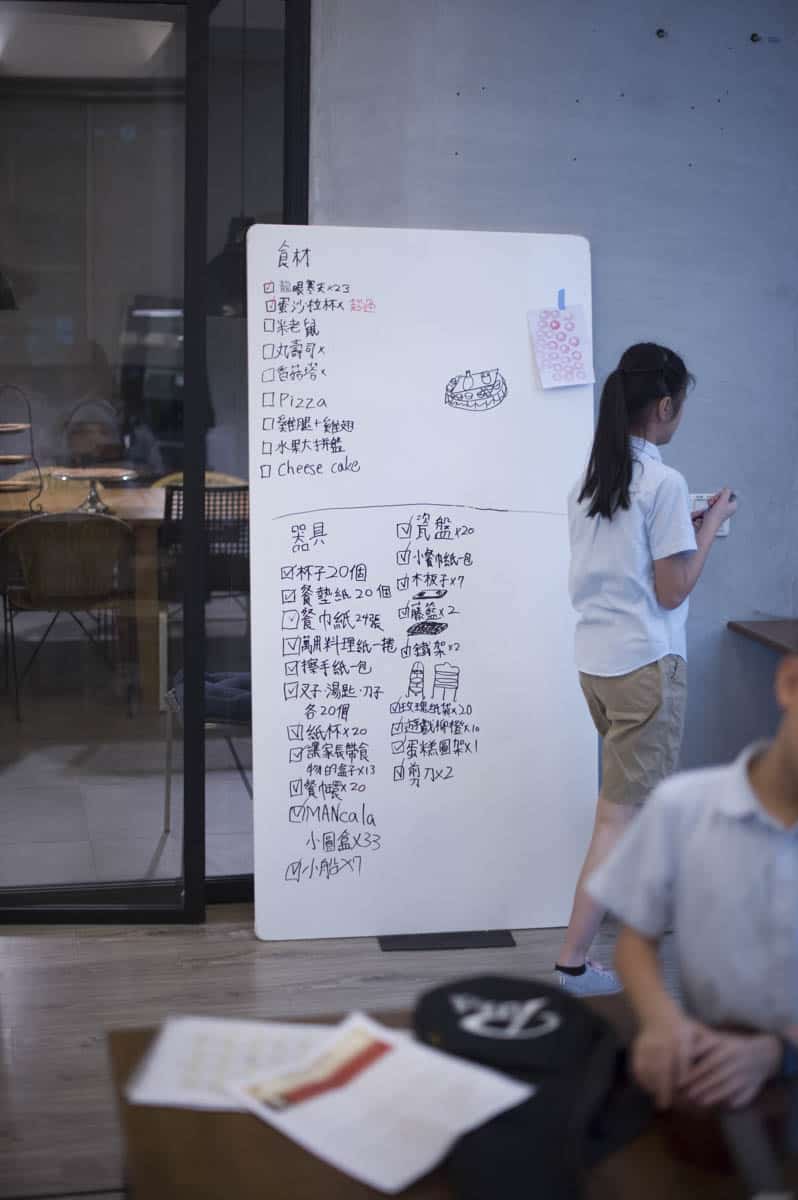 食材
☑龍眼寒天×23
☑蛋沙拉杯×
☐米老鼠
☐丸壽司×
☐香菇塔×
☐Pizza
☐雞腿+雞翅
☐水果大拼盤
☐Cheese cake
器具
☑杯子20個
☑餐墊紙20個
☑餐巾紙24張
☑萬用料理紙一捲
☑擦手紙一包
☑叉子·湯匙·刀子
各20個
☑紙杯×20
☑讓家長帶食
物的盒子×13
☑×20
☑MANcala
小圓盒×33
☑小船×7
☑瓷盤×20
☑小餐巾紙一包
☑木板子×7
☑藤籃×2
☑鐵架×2
☑玫瑰紙袋×20
☑遊戲柳橙×10
☑蛋糕圓架×1
☑剪刀×2